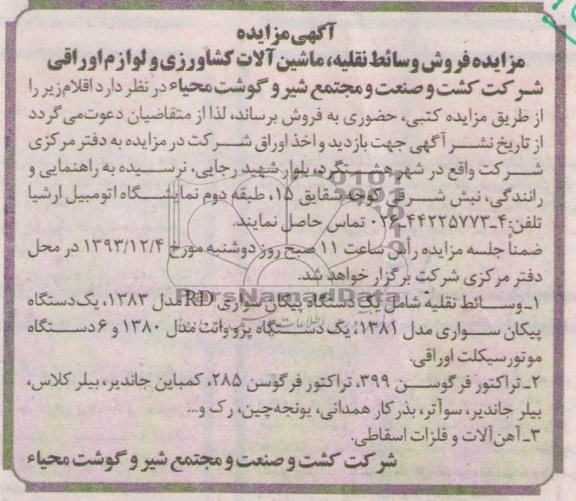 آگهی مزایده
مزایده فروش وسائط نقلیه، ماشین آلات کشاورزی و لوازم اوراقی
شرکت کشت و صنعت و مجتمع شیر و گوشت محیاء در نظر دارد اقلام زیر را
از طریق مزایده کتبی، حضوری به فروش برساند، لذا از متقاضیان دعوت می گردد
از تاریخ نشر آگهی جهت بازدید و اخذ اوراق شرکت در مزایده به دفتر مرکزی
شرکت واقع در شهر هشتگرد، بلوار شهید رجایی، نرسیده به راهنمایی و
رانندگی، نبش شرقی کوچه شقایق ۱۵، طبقه دوم نمایشگاه اتومبیل ارشیا
تلفن: ۴-۴۴۲۲۵۷۷۳-۰۲۶ تماس حاصل نمایند.
ضمناً جلسه مزایده رأس ساعت ۱۱ صبح روز دوشنبه مورخ ۱۳۹۳/۱۲/۴ در محل
دفتر مرکزی شرکت برگزار خواهد شد.
۱-وسائط نقلیه شامل یک دستگاه پیکان سواری RD مدل ۱۳۸۳، یک دستگاه
پیکان سواری مدل ۱۳۸۱، یک دستگاه پژو وانت مدل ۱۳۸۰ و ۶ دستگاه
موتورسیکلت اوراقی.
۲-تراکتور فرگوسن ۳۹۹، تراکتور فرگوسن ۲۸۵، کمباین جاندیر، بیلر کلاس،
بیلر جاندیر، سوآتر، بذرکار همدانی، یونجه چین، رک و...
۳-آهن آلات و فلزات اسقاطی.
شرکت کشت و صنعت و مجتمع شیر و گوشت محیاء
ParsNamadData